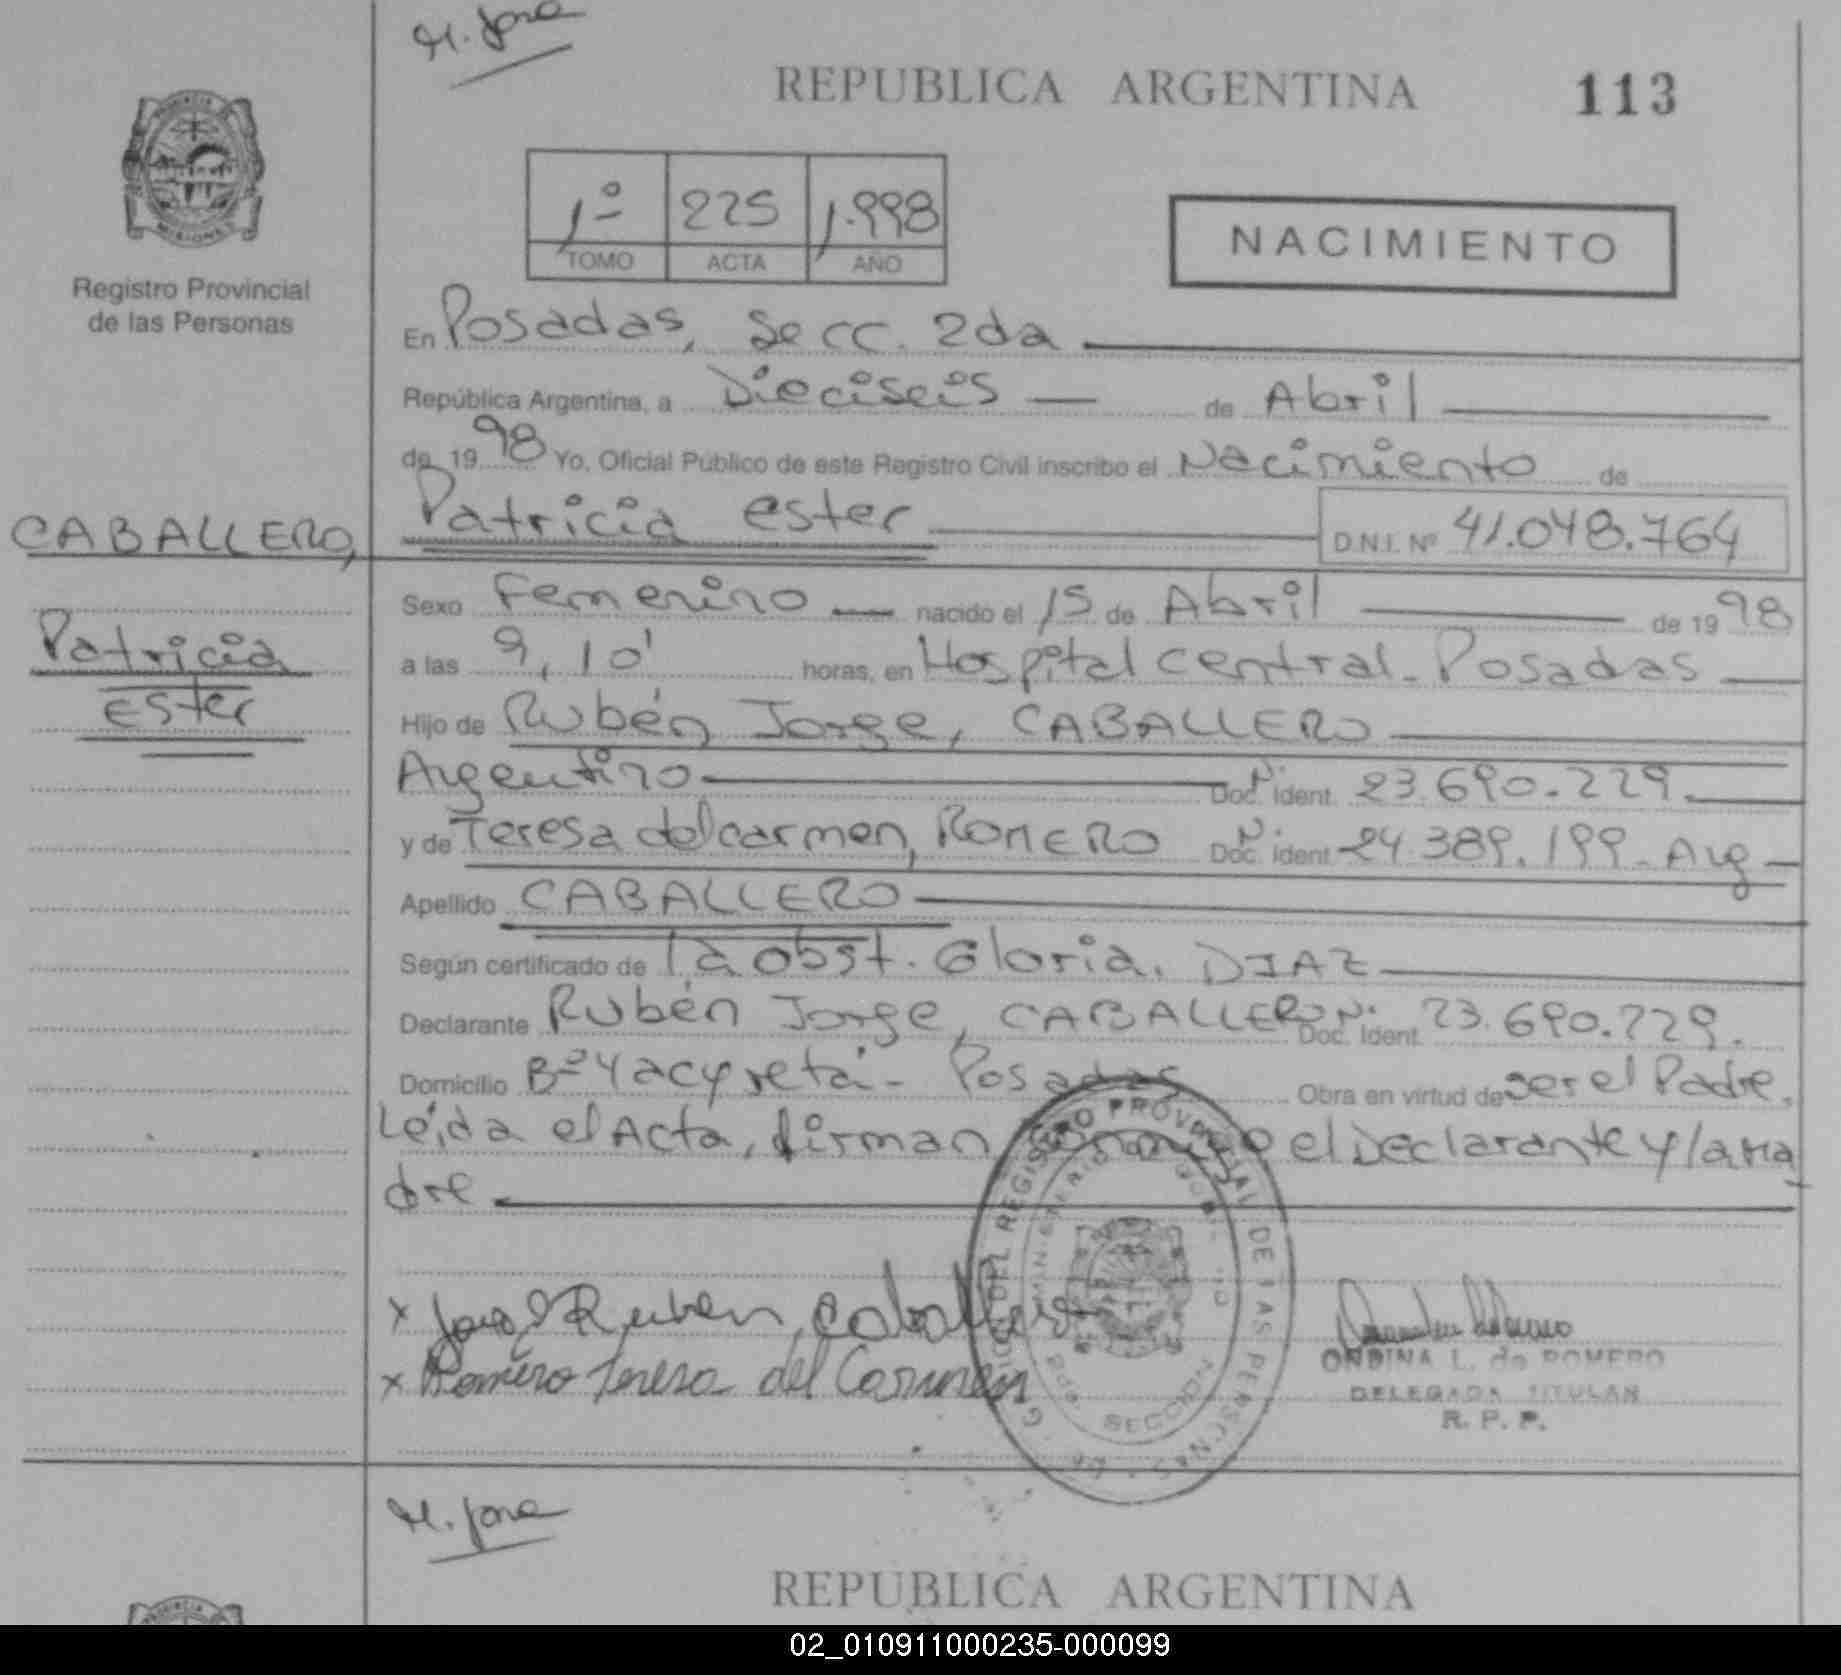 M. José
REPUBLICA ARGENTINA
113
PROVINCIA
MISIONES
Registro Provincial
de las Personas
1º 225 1.998
TOMO ACTA AÑO
NACIMIENTO
En Posadas, Secc. 2da
República Argentina, a Dieciseis de Abril
de 1998 Yo, Oficial Público de este Registro Civil inscribo el Nacimiento de
CABALLERO, Patricia ester D.N.I. Nº 41.048.764
Patricia
Ester
Sexo Femenino nacido el 15 de Abril de 1998
a las 9,10' horas, en Hospital Central - Posadas
Hijo de Rubén Jorge, CABALLERO
Argentino Doc. Nº ident. 23.690.229.
y de Teresa del carmen, ROMERO Doc. Nº ident. 24.389.199 - Arg
Apellido CABALLERO
Según certificado de la obst. Gloria, DIAZ
Declarante Rubén Jorge, CABALLERO Nº Doc. Ident. 23.690.229.
Domicilio Bº Yacyretá - Posadas Obra en virtud de ser el Padre.
Leída el Acta, firman conmigo el Declarante y la Ma
dre
x Jorge Ruben Caballero
x Romero Teresa del Carmen
DEL REGISTRO PROVINCIAL DE LAS PERSONAS
MINISTERIO GOB.
2da SECCION
ONDINA L. de ROMERO
DELEGADA TITULAR
R. P. P.
M. José
REPUBLICA ARGENTINA
02_010911000235-000099